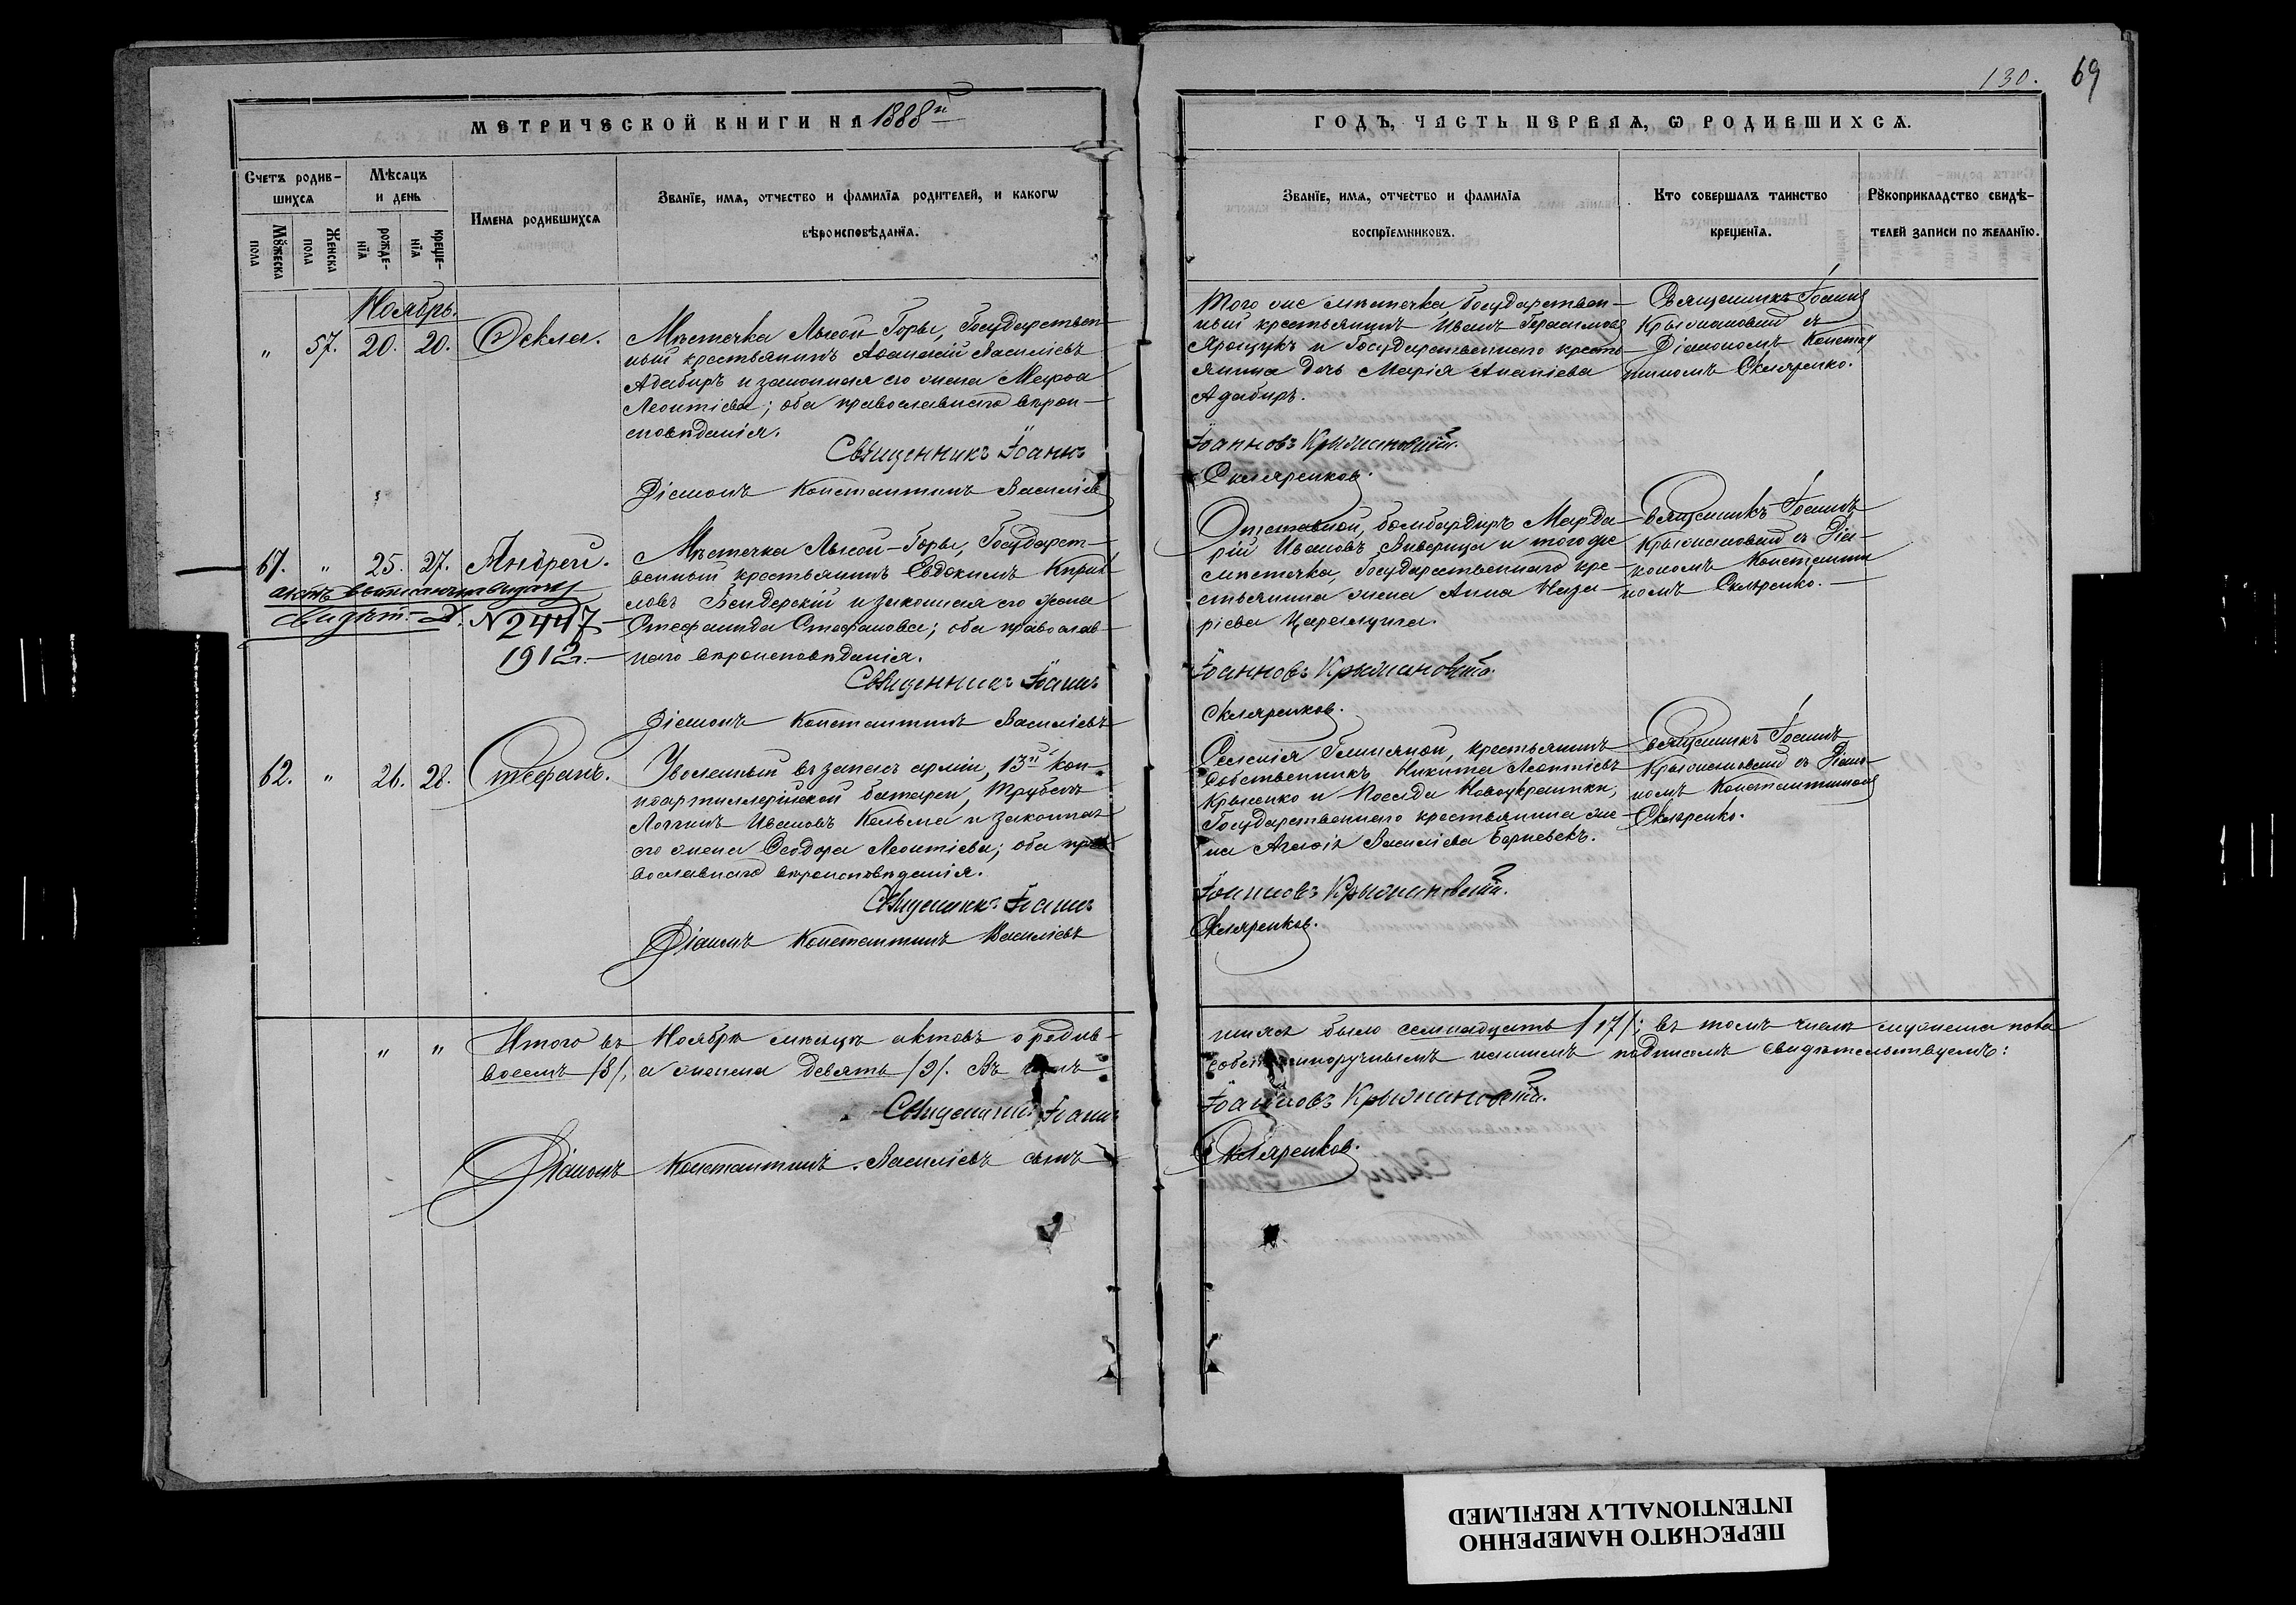 130. 69
МЕТРИЧЕСКОЙ КНИГИ НА 1888й
ГОДЪ, ЧАСТЬ ПЕРВАѦ, Ѡ РОДИВШИХСѦ.
Счетъ родив-
шихсѧ
Мѣсѧцъ
и день
Имена родившихсѧ
Званїе, имѧ, отчество и фамилїѧ родителей, и какогѡ
вѣроисповѣданїѧ.
Мꙋжеска
пола
Женска
пола
рожде-
нїѧ
креще-
нїѧ
Званїе, имѧ, отчество и фамилїѧ
воспрїемниковъ.
Кто совершалъ таинство
крещенїѧ.
Рꙋкоприкладство свидѣ-
телей записи по желанїю.
Ноябрь.
" 57. 20. 20. Ѳекла.
Мѣстечка Лысой Горы, Государствен-
ный крестьянинъ Аѳанасій Василіевъ
Адабиръ и законная его жена Марѳа
Леонтіева; оба православнаго вѣрои-
сповѣданія.
Священникъ Іоаннъ
Діаконъ Константинъ Василіевъ
Того же мѣстечка Государствен-
ный крестьянинъ Иванъ Герасимовъ
Ярощукъ и Государственнаго кресть-
янина дочь Марія Ананіева
Адабиръ.
Іоанновъ Крыжановскій.
Скляренковъ.
Священникъ Іоаннъ
Крыжановскій съ
Діакономъ Констан
тиномъ Скляренко.
61. " 25. 27. Андрей.
Свидѣт-
№ 2447
1912 г.
Мѣстечка Лысой-Горы, Государст-
венный крестьянинъ Евдокимъ Кирил
ловъ Бендерскій и законная его жена
Стефанида Стефановна; оба православ-
наго вѣроисповѣданія.
Священникъ Іоаннъ
Діаконъ Константинъ Василіевъ
Отставной, бомбардиръ Марда-
рій Ивановъ и того же
мѣстечка, Государственнаго кре-
стьянина жена Анна Наза-
ріева
Іоанновъ Крыжановскій.
Скляренков.
Священникъ Іоаннъ
Крыжановскій съ Діа-
кономъ Константи
номъ Скляренко.
62. " 26. 28. Стефанъ.
Уволенный въ запасъ арміи, 13й кон-
ноартиллерійской батареи, Трубачъ
Логгинъ Ивановъ Кельма и законная
его жена Ѳеодора Леонтіева; оба пра-
вославнаго вѣроисповѣданія.
Священникъ Іоаннъ
Діаконъ Константинъ Василіевъ
Селенія крестьянинъ
собственникъ Никита Леонтіевъ
Крысенко и Посада Новоукраинки,
Государственнаго крестьянина же-
на Агаѳія Василіева
Іоанновъ Крыжановскій.
Скляренков.
Священникъ Іоаннъ
Крыжановскій съ Діако-
номъ Константиномъ
Скляренко.
" " Итого въ Ноябрѣ мѣсяцѣ актовъ о родив-
шихся было семнадцать /17/; въ томъ числѣ мужеска пола
восемь /8/, а женска девять /9/. Въ чемъ
собственноручнымъ нашимъ подписомъ свидѣтельствуемъ:
Священникъ Іоаннъ
Іоанновъ Крыжановскій.
Діаконъ Константинъ Василіевъ сынъ
Скляренков.
ПЕРЕСНЯТО НАМЕРЕННО
INTENTIONALLY REFILMED